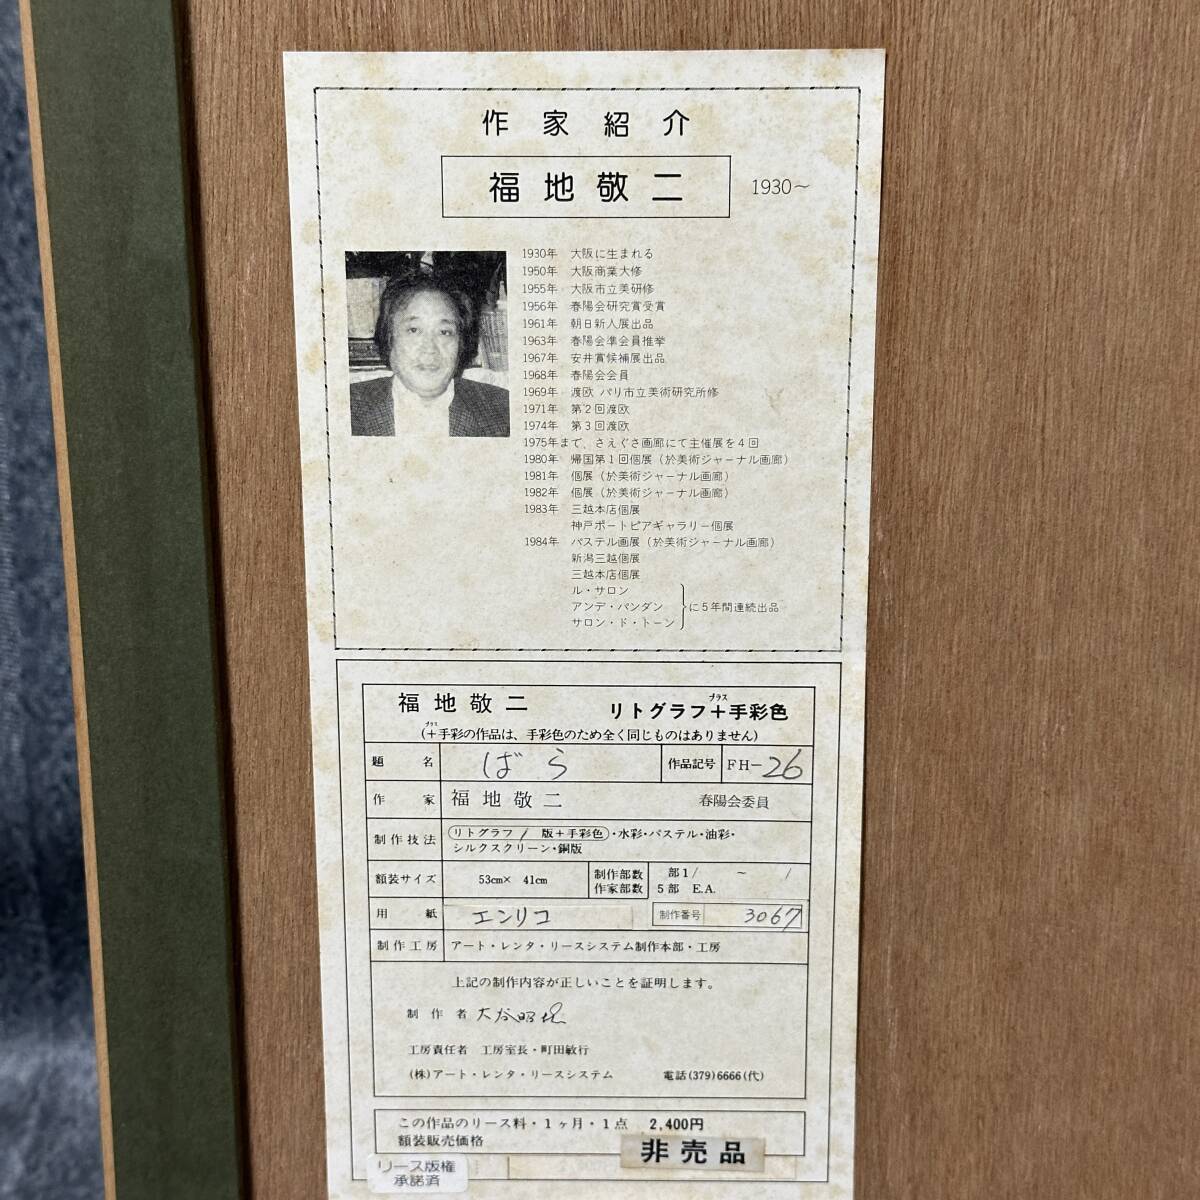 作家紹介
福地敬二 1930〜
1930年 大阪に生まれる
1950年 大阪商業大修
1955年 大阪市立美研修
1956年 春陽会研究賞受賞
1961年 朝日新人展出品
1963年 春陽会準会員推挙
1967年 安井賞候補展出品
1968年 春陽会会員
1969年 渡欧 パリ市立美術研究所修
1971年 第2回渡欧
1974年 第3回渡欧
1975年まで、さえぐさ画廊にて主催展を4回
1980年 帰国第1回個展(於美術ジャーナル画廊)
1981年 個展(於美術ジャーナル画廊)
1982年 個展(於美術ジャーナル画廊)
1983年 三越本店個展
神戸ポートピアギャラリー個展
1984年 パステル画展(於美術ジャーナル画廊)
新潟三越個展
三越本店個展
ル・サロン
アンデ・パンダン に5年間連続出品
サロン・ド・トーン
福地敬二 リトグラフ+プラス手彩色
(+プラス手彩の作品は、手彩色のため全く同じものはありません)
題名 ばら 作品記号 FH-26
作家 福地敬二 春陽会委員
制作技法 リトグラフ / 版+手彩色・水彩・パステル・油彩・
シルクスクリーン・銅版
額装サイズ 53cm× 41cm 制作部数 部1/ ~ /
作家部数 5部 E.A.
用紙 エンリコ 制作番号 3067
制作工房 アート・レンタ・リースシステム制作本部・工房
上記の制作内容が正しいことを証明します。
制作者 大谷昭
工房責任者 工房室長・町田敏行
(株)アート・レンタ・リースシステム 電話(379)6666(代)
この作品のリース料・1ヶ月・1点 2,400円
額装販売価格 非売品
リース版権
承諾済